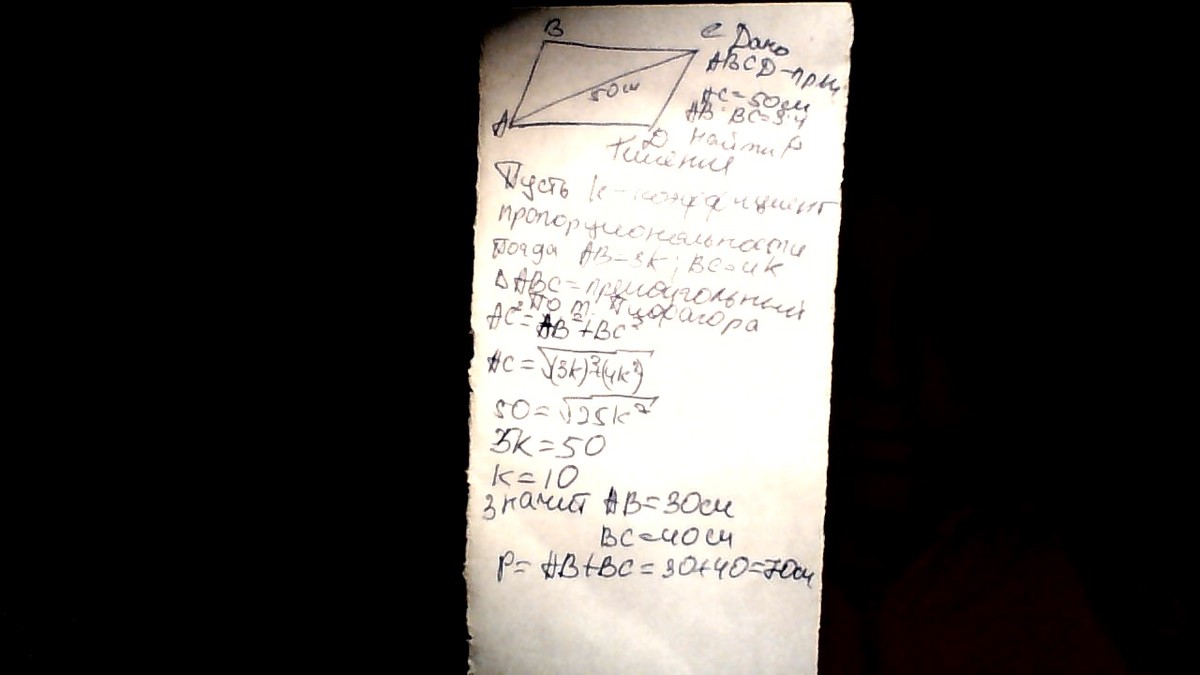 B
C Дано
ABCD-прям
50см
AC=50см
AB:BC=3:4
A
D найти P
Решение
Пусть k-коэффициент
пропорциональности
Тогда AB=3k; BC=4k
ΔABC=прямоугольный
По т. Пифагора
AC²=AB²+BC²
AC=√(3k)²+(4k²)
50=√25k²
5k=50
k=10
Значит AB=30см
BC=40см
P=AB+BC=30+40=70см